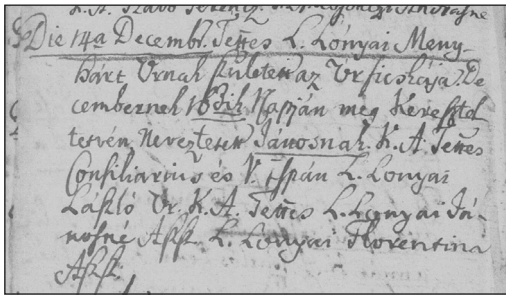 K. A. Szabó Ferentz
Die 14a Decemb. Tettes L. Lónyai Meny-
hárt Úrnak született az Úrficskája De
cembernek 18dik Napján meg Keresztel
tetvén, Neveztetett Jánosnak. K. A. Tettes
Consiliarius és V. Ispán L. Lonyai
László Úr. K. A. Tettes L. Lonyai Já-
nosné Assz. L. Lonyai Florentina
Assz.